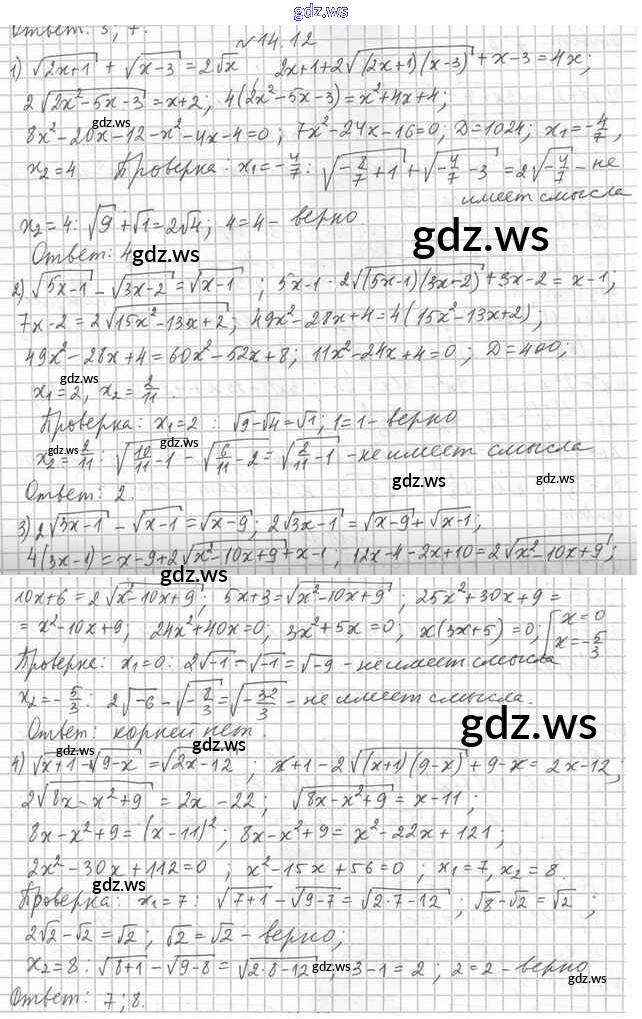 gdz.ws
Ответ: 3; 7.
№14.12
1) √(2x+1) + √(x-3) = 2√x 2x+1+2√((2x+1)(x-3)) + x-3 = 4x;
2√(2x²-5x-3) = x+2; 4(2x²-5x-3) = x²+4x+4;
8x²-20x-12-x²-4x-4=0; 7x²-24x-16=0; D=1024; x₁=-4/7;
gdz.ws
x₂=4 Проверка: x₁=-4/7: √(-8/7+1) + √(-4/7-3) = 2√(-4/7) - не
имеет смысла
x₂=4: √9+√1=2√4; 4=4 - верно
Ответ: 4
gdz.ws
gdz.ws
2) √(5x-1) - √(3x-2) = √(x-1); 5x-1-2√((5x-1)(3x+2)) + 3x-2 = x-1;
7x-2=2√(15x²-13x+2); 49x²-28x+4=4(15x²-13x+2);
49x²-28x+4=60x²-52x+8; 11x²-24x+4=0; D=400;
gdz.ws
x₁=2, x₂=2/11.
Проверка: x₁=2: √9-√4=√1; 1=1 - верно
gdz.ws
gdz.ws
x₂=2/11: √(10/11-1) - √(6/11-2) = √(2/11-1) - не имеет смысла
gdz.ws
gdz.ws
Ответ: 2.
3) 2√(3x-1) - √(x-1) = √(x-9); 2√(3x-1) = √(x-9)+√(x-1);
4(3x-1)=x-9+2√(x²-10x+9)+x-1; 12x-4-2x+10=2√(x²-10x+9);
gdz.ws
10x+6=2√(x²-10x+9); 5x+3=√(x²-10x+9); 25x²+30x+9=
=x²-10x+9; 24x²+40x=0; 3x²+5x=0; x(3x+5)=0; [x=0
x=-5/3
Проверка: x₁=0: 2√-1-√-1=√-9 - не имеет смысла
x₂=-5/3: 2√-6-√(-8/3)=√(-32/3) - не имеет смысла.
gdz.ws
Ответ: корней нет.
gdz.ws
4) √(x+1)-√(9-x)=√(2x-12); x+1-2√((x+1)(9-x))+9-x=2x-12;
2√(8x-x²+9)=2x-22; √(8x-x²+9)=x-11;
8x-x²+9=(x-11)²; 8x-x²+9=x²-22x+121;
2x²-30x+112=0; x²-15x+56=0; x₁=7, x₂=8.
gdz.ws
Проверка: x₁=7: √(7+1)-√(9-7)=√(2·7-12); √8-√2=√2;
2√2-√2=√2; √2=√2 - верно;
x₂=8: √(8+1)-√(9-8)=√(2·8-12); 3-1=2; 2=2 - верно
gdz.ws
gdz.ws
Ответ: 7; 8.
gdz.ws